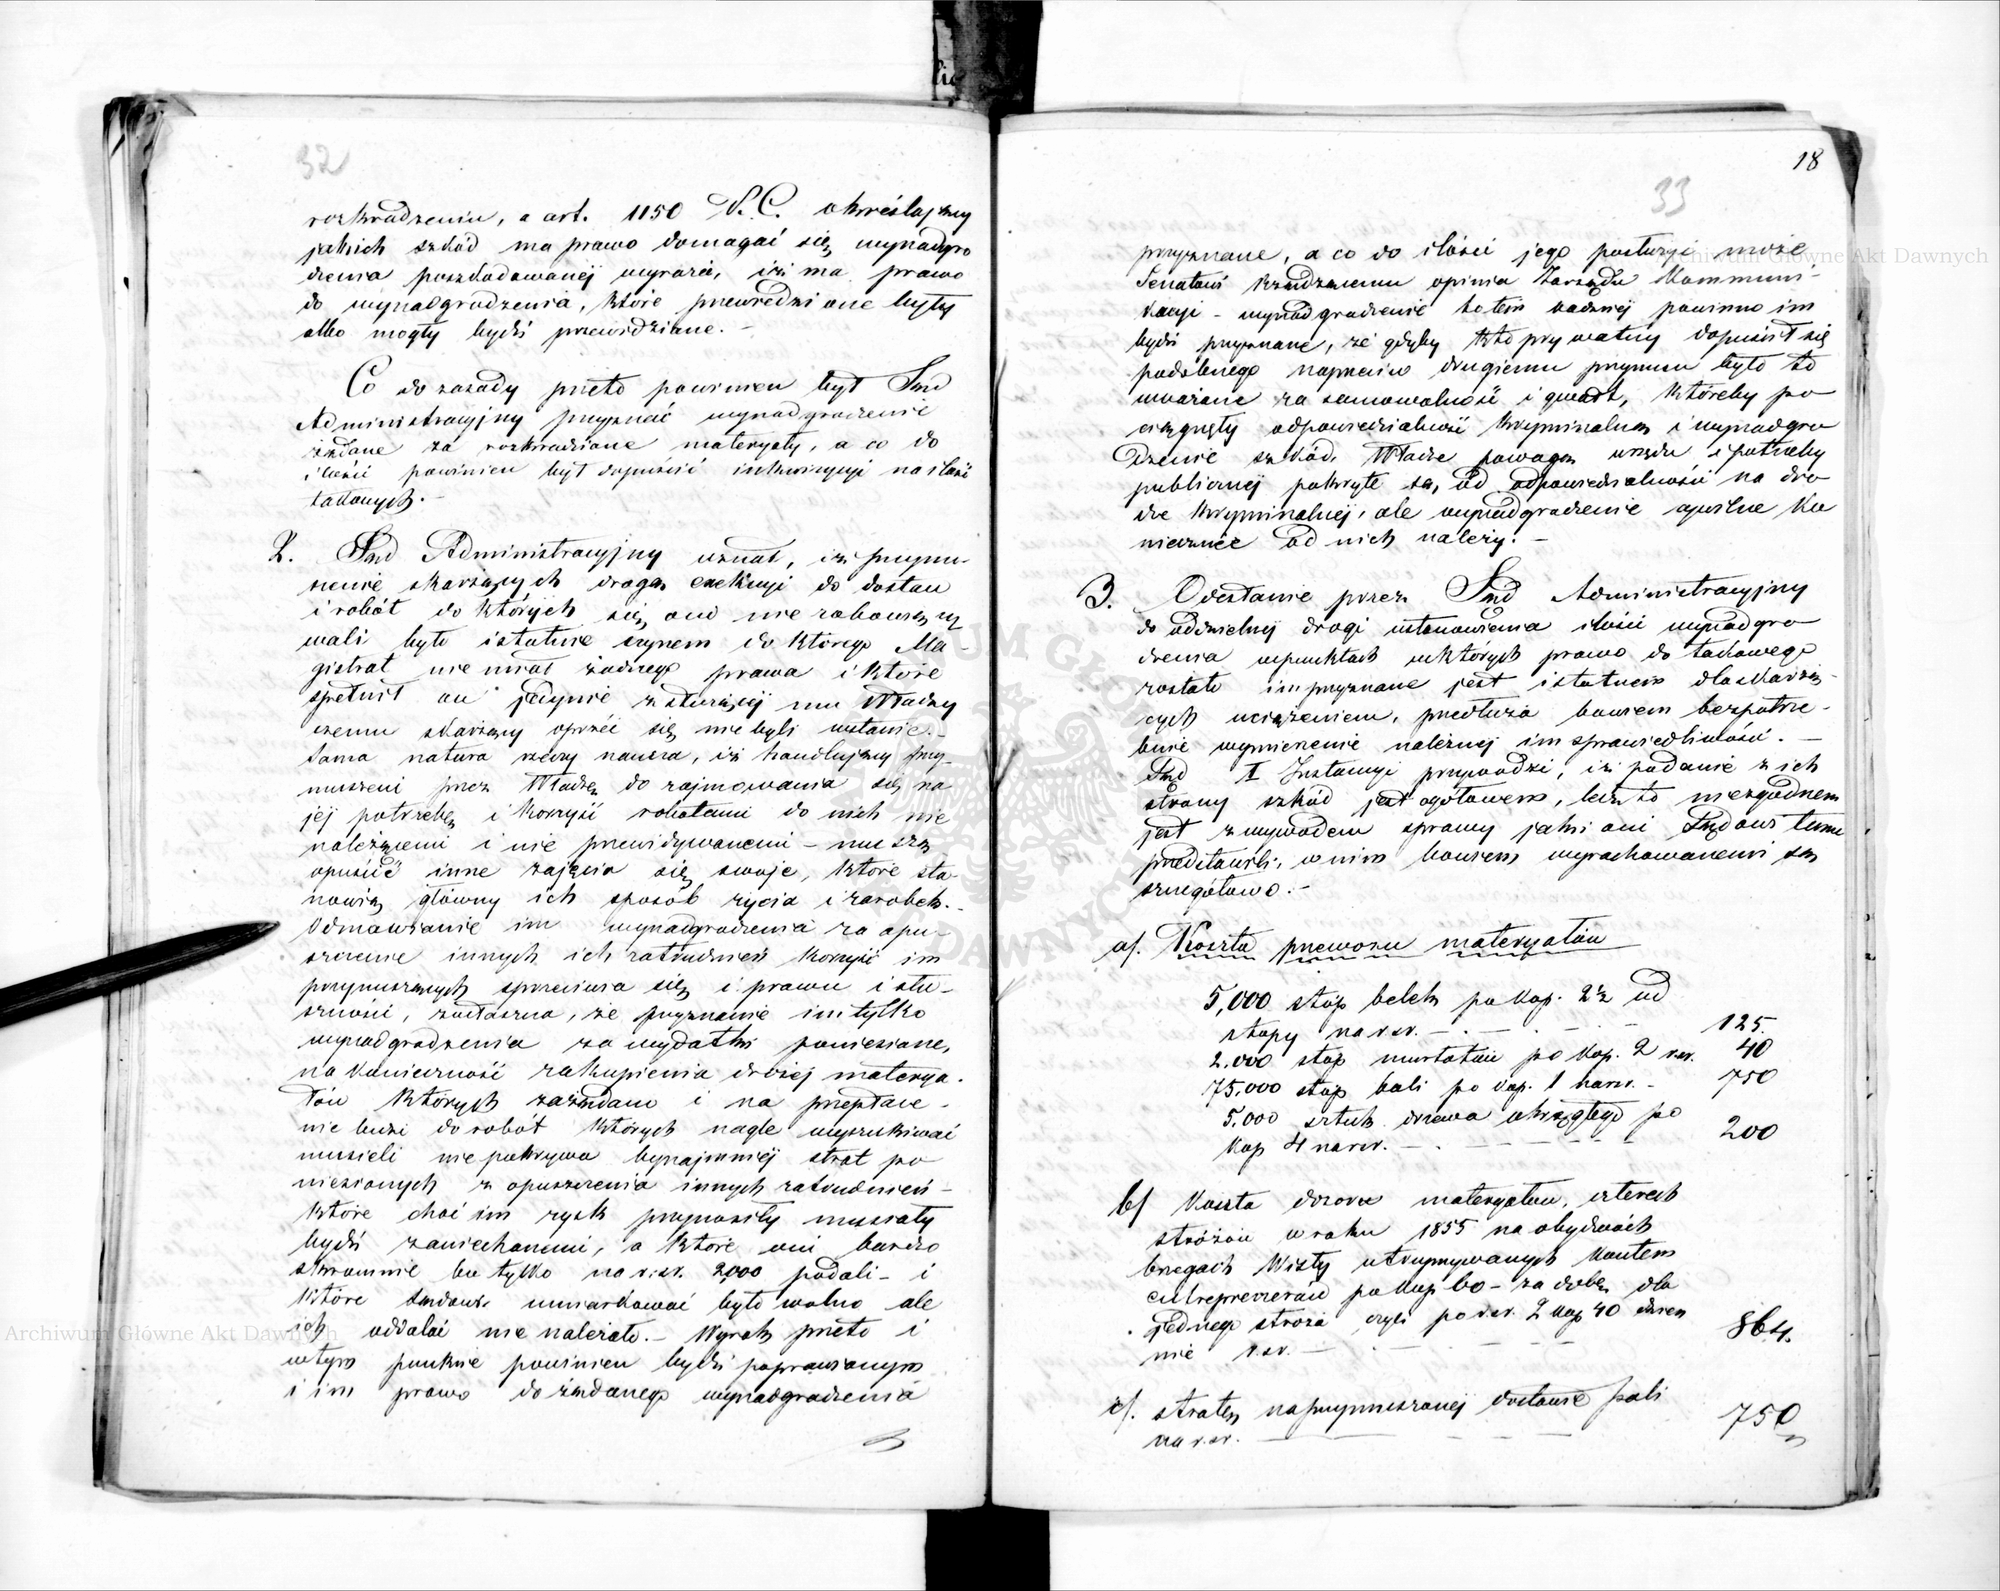 32
rozkradzeniu, a art. 1150 N.C. określający
jakich szkód ma prawo domagać się wynadgro
dzenia poszkodowanéj wyraża, iż ma prawo
do wynadgrodzenia, które przewidziane były
albo mogły bydź przewidziane. –
Co do zasady przeto powinien był Sąd
Administracyjny przyznać wynadgrodzenie
żądane za rozkradzione materyały, a co do
ilości powinien był dopuścić inkwizycyi na ilość
takowych. –
2. Sąd Administracyjny uznał, iż przymu-
szenie skarżących drogą exekucyi do dostaw
i robót do których się oni nie zobowiązy
wali było istotnie czynem do którego Ma-
gistrat nie miał żadnego prawa i które
spełnił on jedynie z służącéj mu Władzy
czemu skarżący oprzéć się nie byli wstanie. –
Sama natura rzeczy naucza, iż handlujący przy-
muszeni przez Władzę do zajmowania się na
jéj potrzebę i korzyść robotami do nich nie
należącemi i nie przewidywanemi – muszą
opuścić inne zajęcia się swoje, które sta
nowią główny ich sposób życia i zarobek. –
Odmawianie im wynadgrodzenia za opu-
szczenie innych ich zatrudnień korzyść im
przynoszących sprzeciwia się i prawu i słu-
szności, zwłaszcza, że przyznanie im tylko
wynadgrodzenia za wydatki poniesione,
na konieczność zakupienia drożej materya-
łów których zażądano i na przepłace-
nie ludzi do robót których nagle wyszukiwać
musieli nie pokrywa bynajmniéj strat po
niesionych z opuszczenia innych zatrudnień –
które choć im zysk przynosiły musiały
bydź zaniechanemi, a które oni bardzo
skromnie bo tylko na r. sr. 2,000 podali – i
które Sądowi umiarkować było wolno ale
ich oddalać nie należało. – Wyrok przeto i
w tym punkcie powinien bydź poprawionym
i im prawo do żądanego wynadgrodzenia
18
33
przyznane, a co do ilości jego posłużyć może
Senatowi Rządzącemu opinia Zarządu Kommuni-
kacyi – wynadgrodzenie to tem bardziéj powinno im
bydź przyznane, że gdyby kto prywatny dopuścił się
podobnego naprzeciw drugiemu przymusu było to
uważane za samowolność i gwałt, któreby po
ciągnęły odpowiedzialność kryminalną i wynadgro
dzenie szkód. Władze powagą urzędu i potrzeby
publicznéj pokryte są, od odpowiedzialności na dro
dze kryminalnéj, ale wynadgrodzenie cywilne ko
niecznie od nich należy. –
3. Odesłanie przez Sąd Administracyjny
do oddzielnéj drogi ustanowienia ilości wynadgro
dzenia w punktach w których prawo do takowego
zostało im przyznane jest istotnem dla skarżą-
cych uciążeniem, przedłuża bowiem bezpotrze-
bnie wymierzenie należnéj im sprawiedliwości. –
Sąd I Instancyi przywodzi, iż podanie z ich
strony szkód jest ogółowem, lecz to niezgodnem
jest z wywodem sprawy jaki oni Sądowi temu
przedstawili, w nim bowiem wyrachowanemi są
szczegółowo. –
a/. Koszta przewozu materyałów
5,000 stóp belek po kop. 2½ od
stopy na r. sr. – . – . – . – 125.
2.000 stóp murłatów po kop. 2 r. sr. 40
75.000 stóp bali po kop. 1 na r. sr. – 750
5.000 sztuk drzewa okrągłego po
kop 4 na r. sr. – . – – – – – 200
b/ Koszta dozoru materyałów, czterech
stróżów w roku 1855 na obydwóch
brzegach Wisły utrzymywanych kosztem
entreprenerów po kop 60 – za dobę dla
jednego stróża czyli po r. sr. 2 kop 40 dzien
nie r. sr. – . – . – – – 864.
c/. stratę na przymuszonéj dostawie pali
na r. sr. – – – – 750